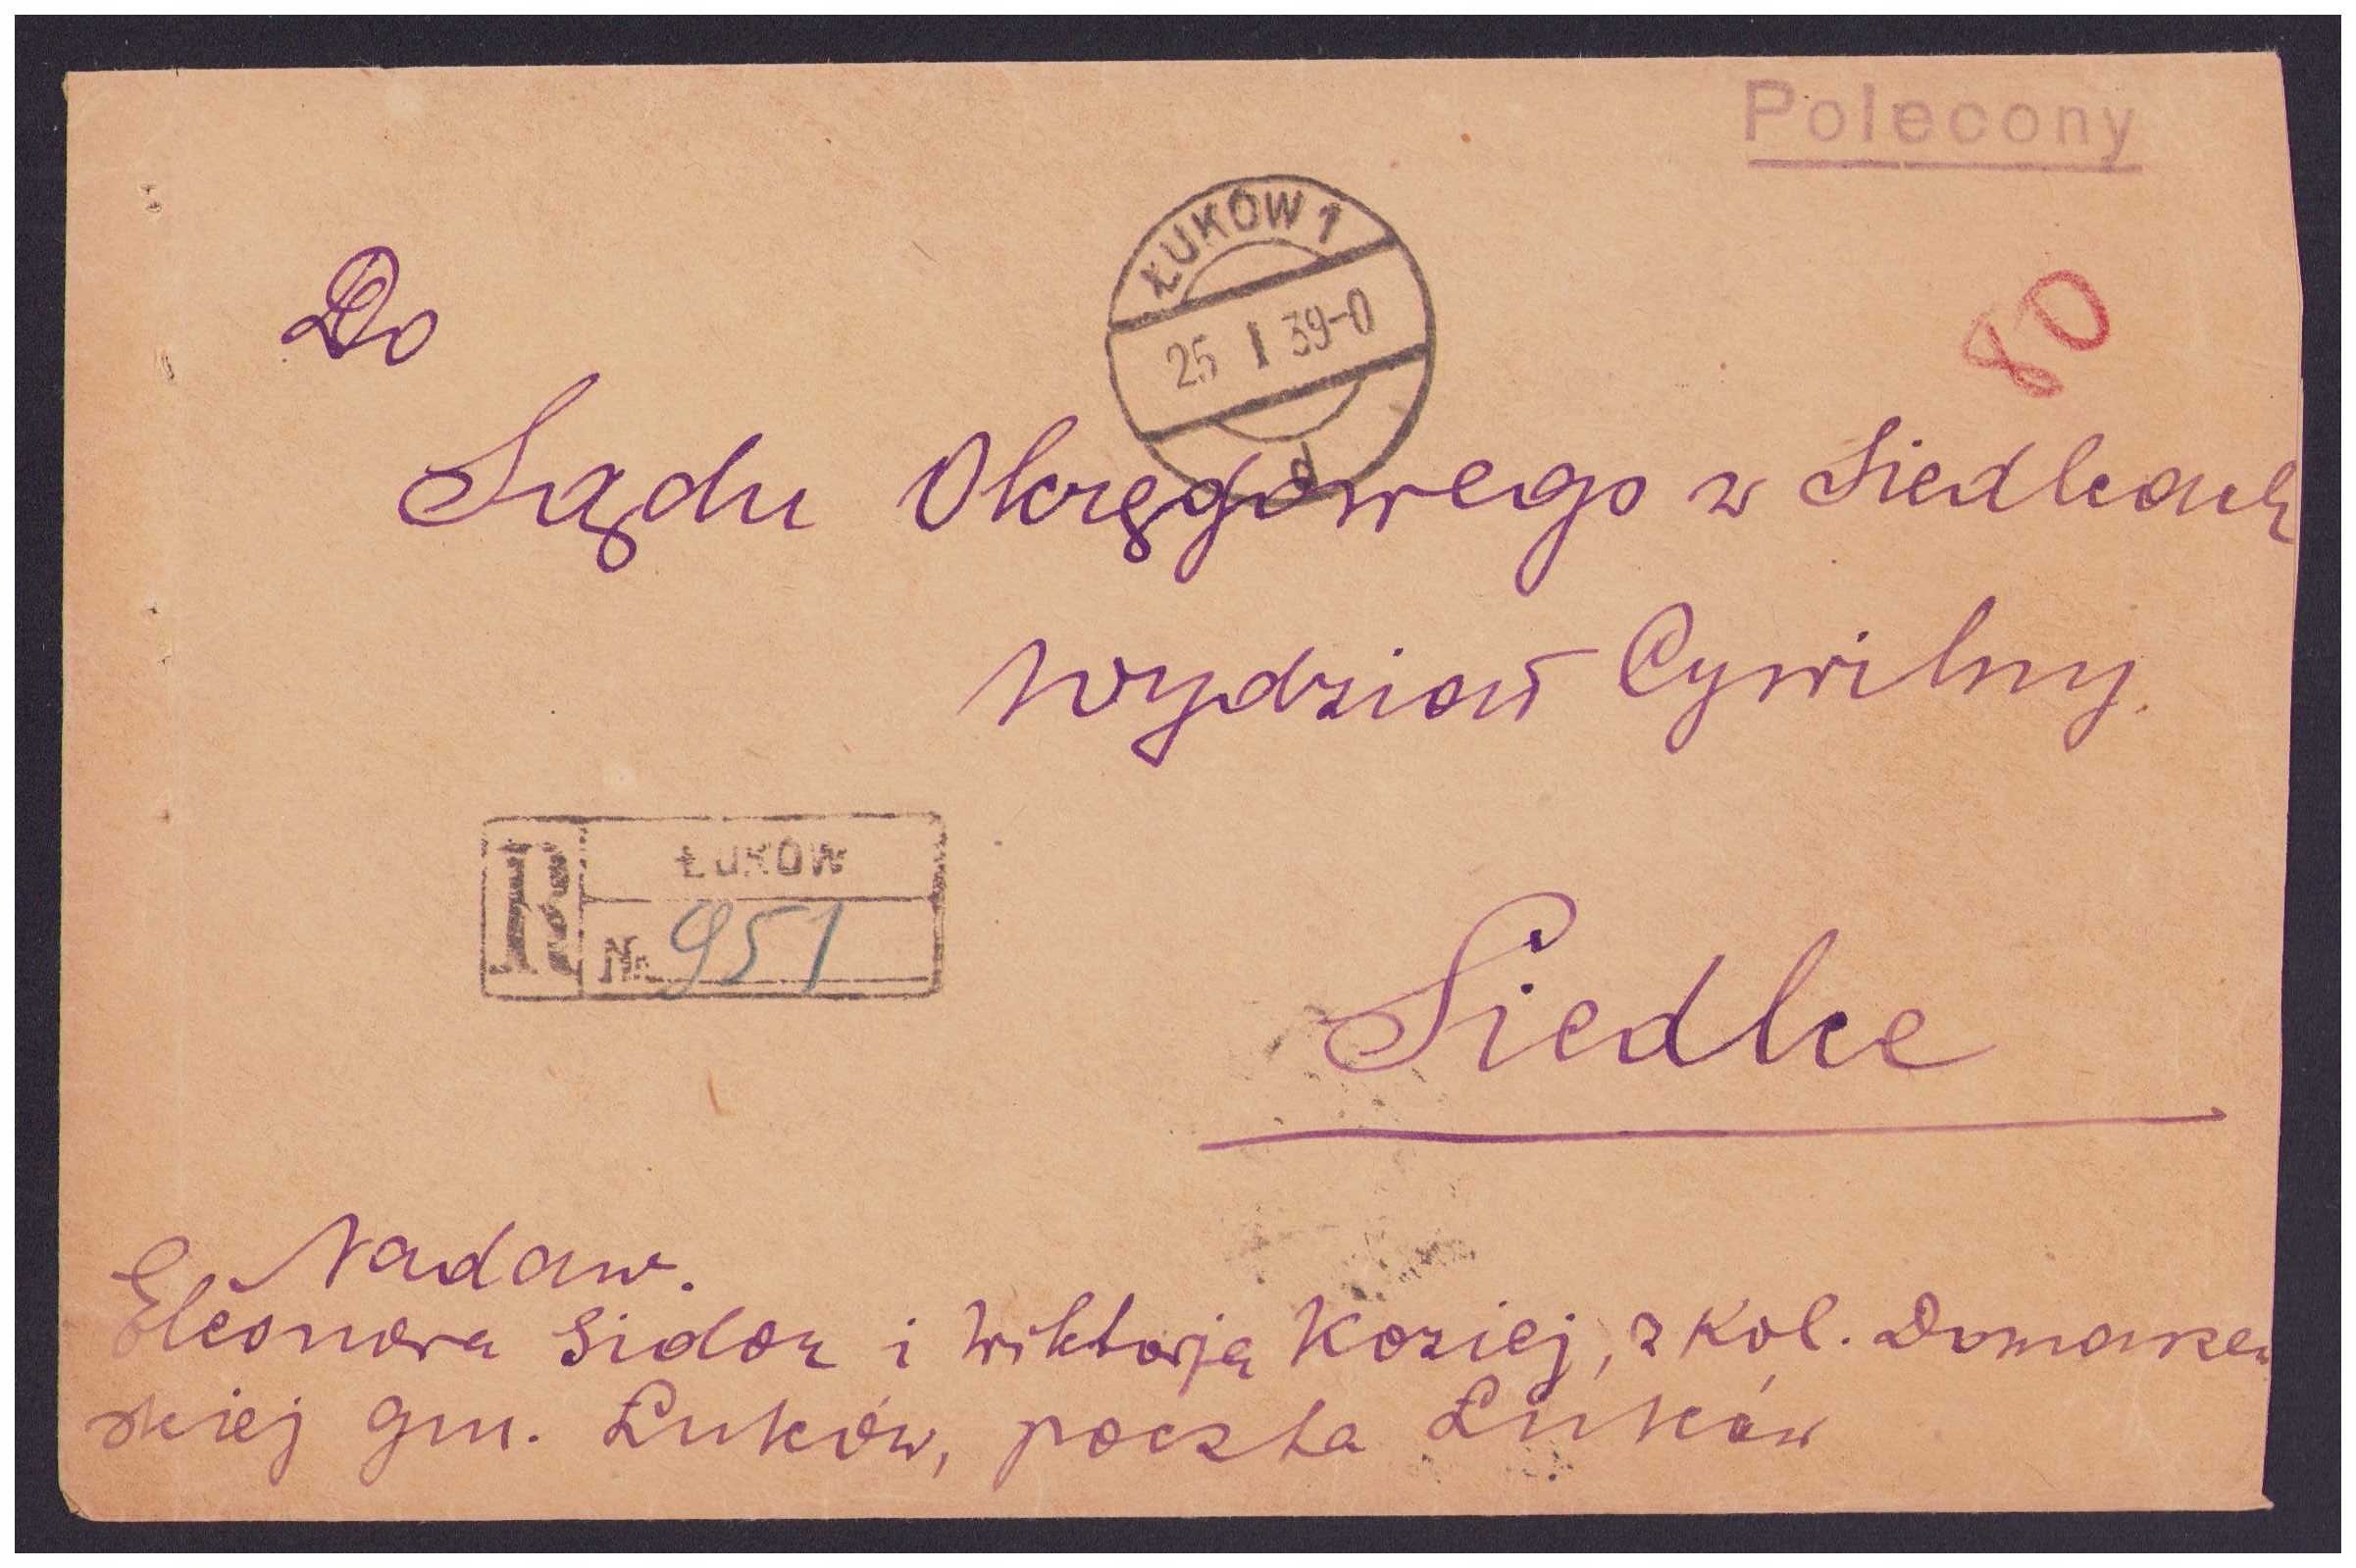 Polecony
ŁUKÓW 1
25 I 39-0
d
80
Do
Sądu Okręgowego w Siedlcach
Wydział Cywilny.
R ŁUKÓW
Nr 951
Siedlce
Nadaw.
Eleonora i Wiktorja Koziej, z Kol.
skiej gm. Łuków, poczta Łuków